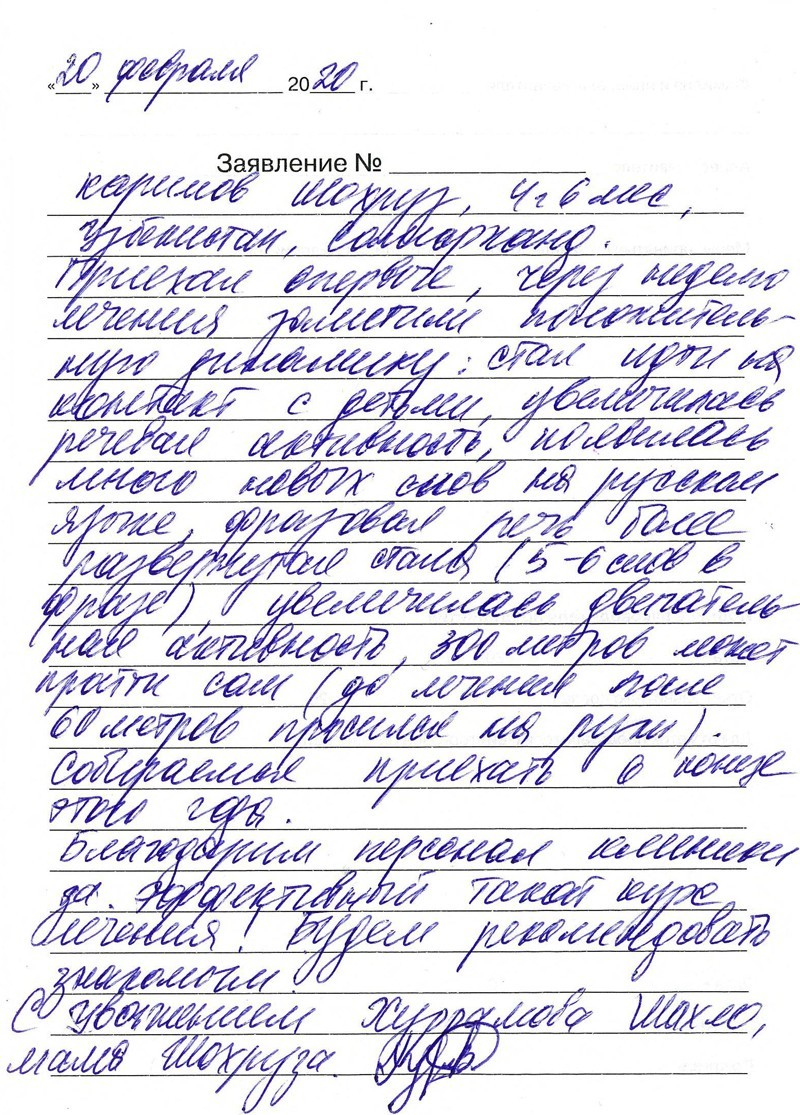 «20» февраля 2020 г.
Заявление №
Каримов Шохруз, 4 г 6 мес,
Узбекистан, Самарканд.
Приехал впервые, через неделю
лечения заметили положитель-
ную динамику: стал идти на
контакт с детьми, увеличилась
речевая активность, появилась
много новых слов на русском
языке, фразовая речь более
развернутая стала (5-6 слов в
фразе), увеличилась двигатель-
ная активность, 300 метров может
пройти сам (до лечения после
60 метров просился на руки).
Собираемся приехать в конце
этого года.
Благодарим персонал клиники
за эффективный такой курс
лечения! Будем рекомендовать
знакомым.
С уважением Хуррамова Шахло,
мама Шохруза.